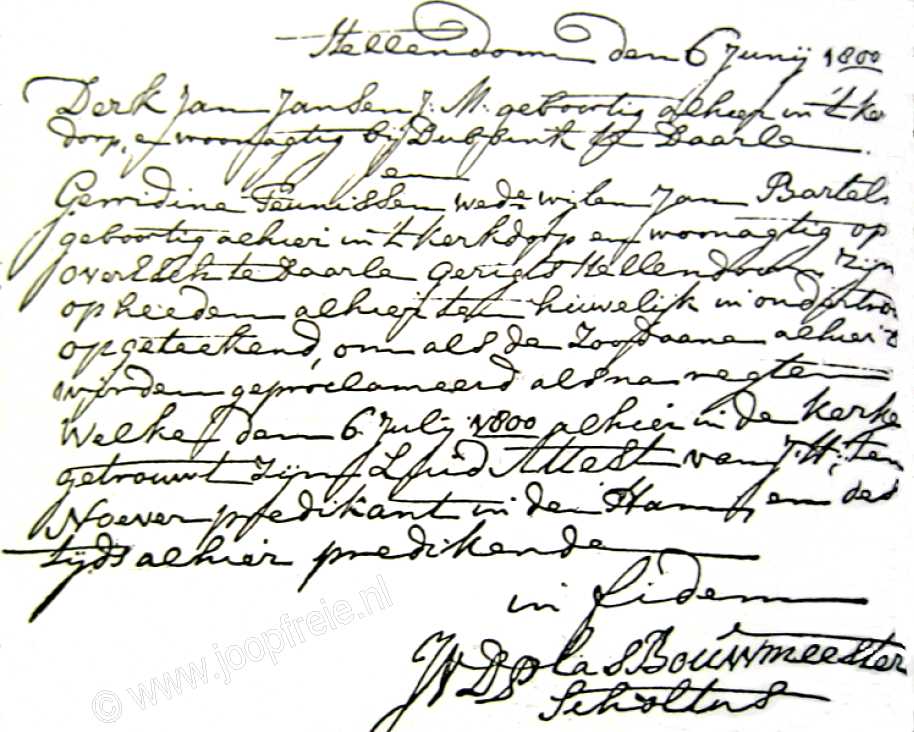 Hellendoorn den 6 Junij 1800
Derk Jan Jansen J. M. geboortig alhier in 't ker
dorp, en woonagtig bij te Daarle.
en
Gerridina Teunissen wede wijlen Jan Bartels
geboortig alhier in 't Kerkdorp en woonagtig op
overEsch te Daarle Gerigts Hellendoorn, zijn
op heeden alhier ten huwelijk in ondertro
opgeteekend, om als de Zoodaene alhier
worden geproclameerd als na regten
Welke den 6 Julij 1800 alhier in de Kerke
getrouwt Zijn Luid Attest van J. H. ten
Noever predikant in den Ham, en des
tijds alhier predikende
in fidem
JVDPlas Bouwmeester
Scholtus
© www.joopfreie.nl